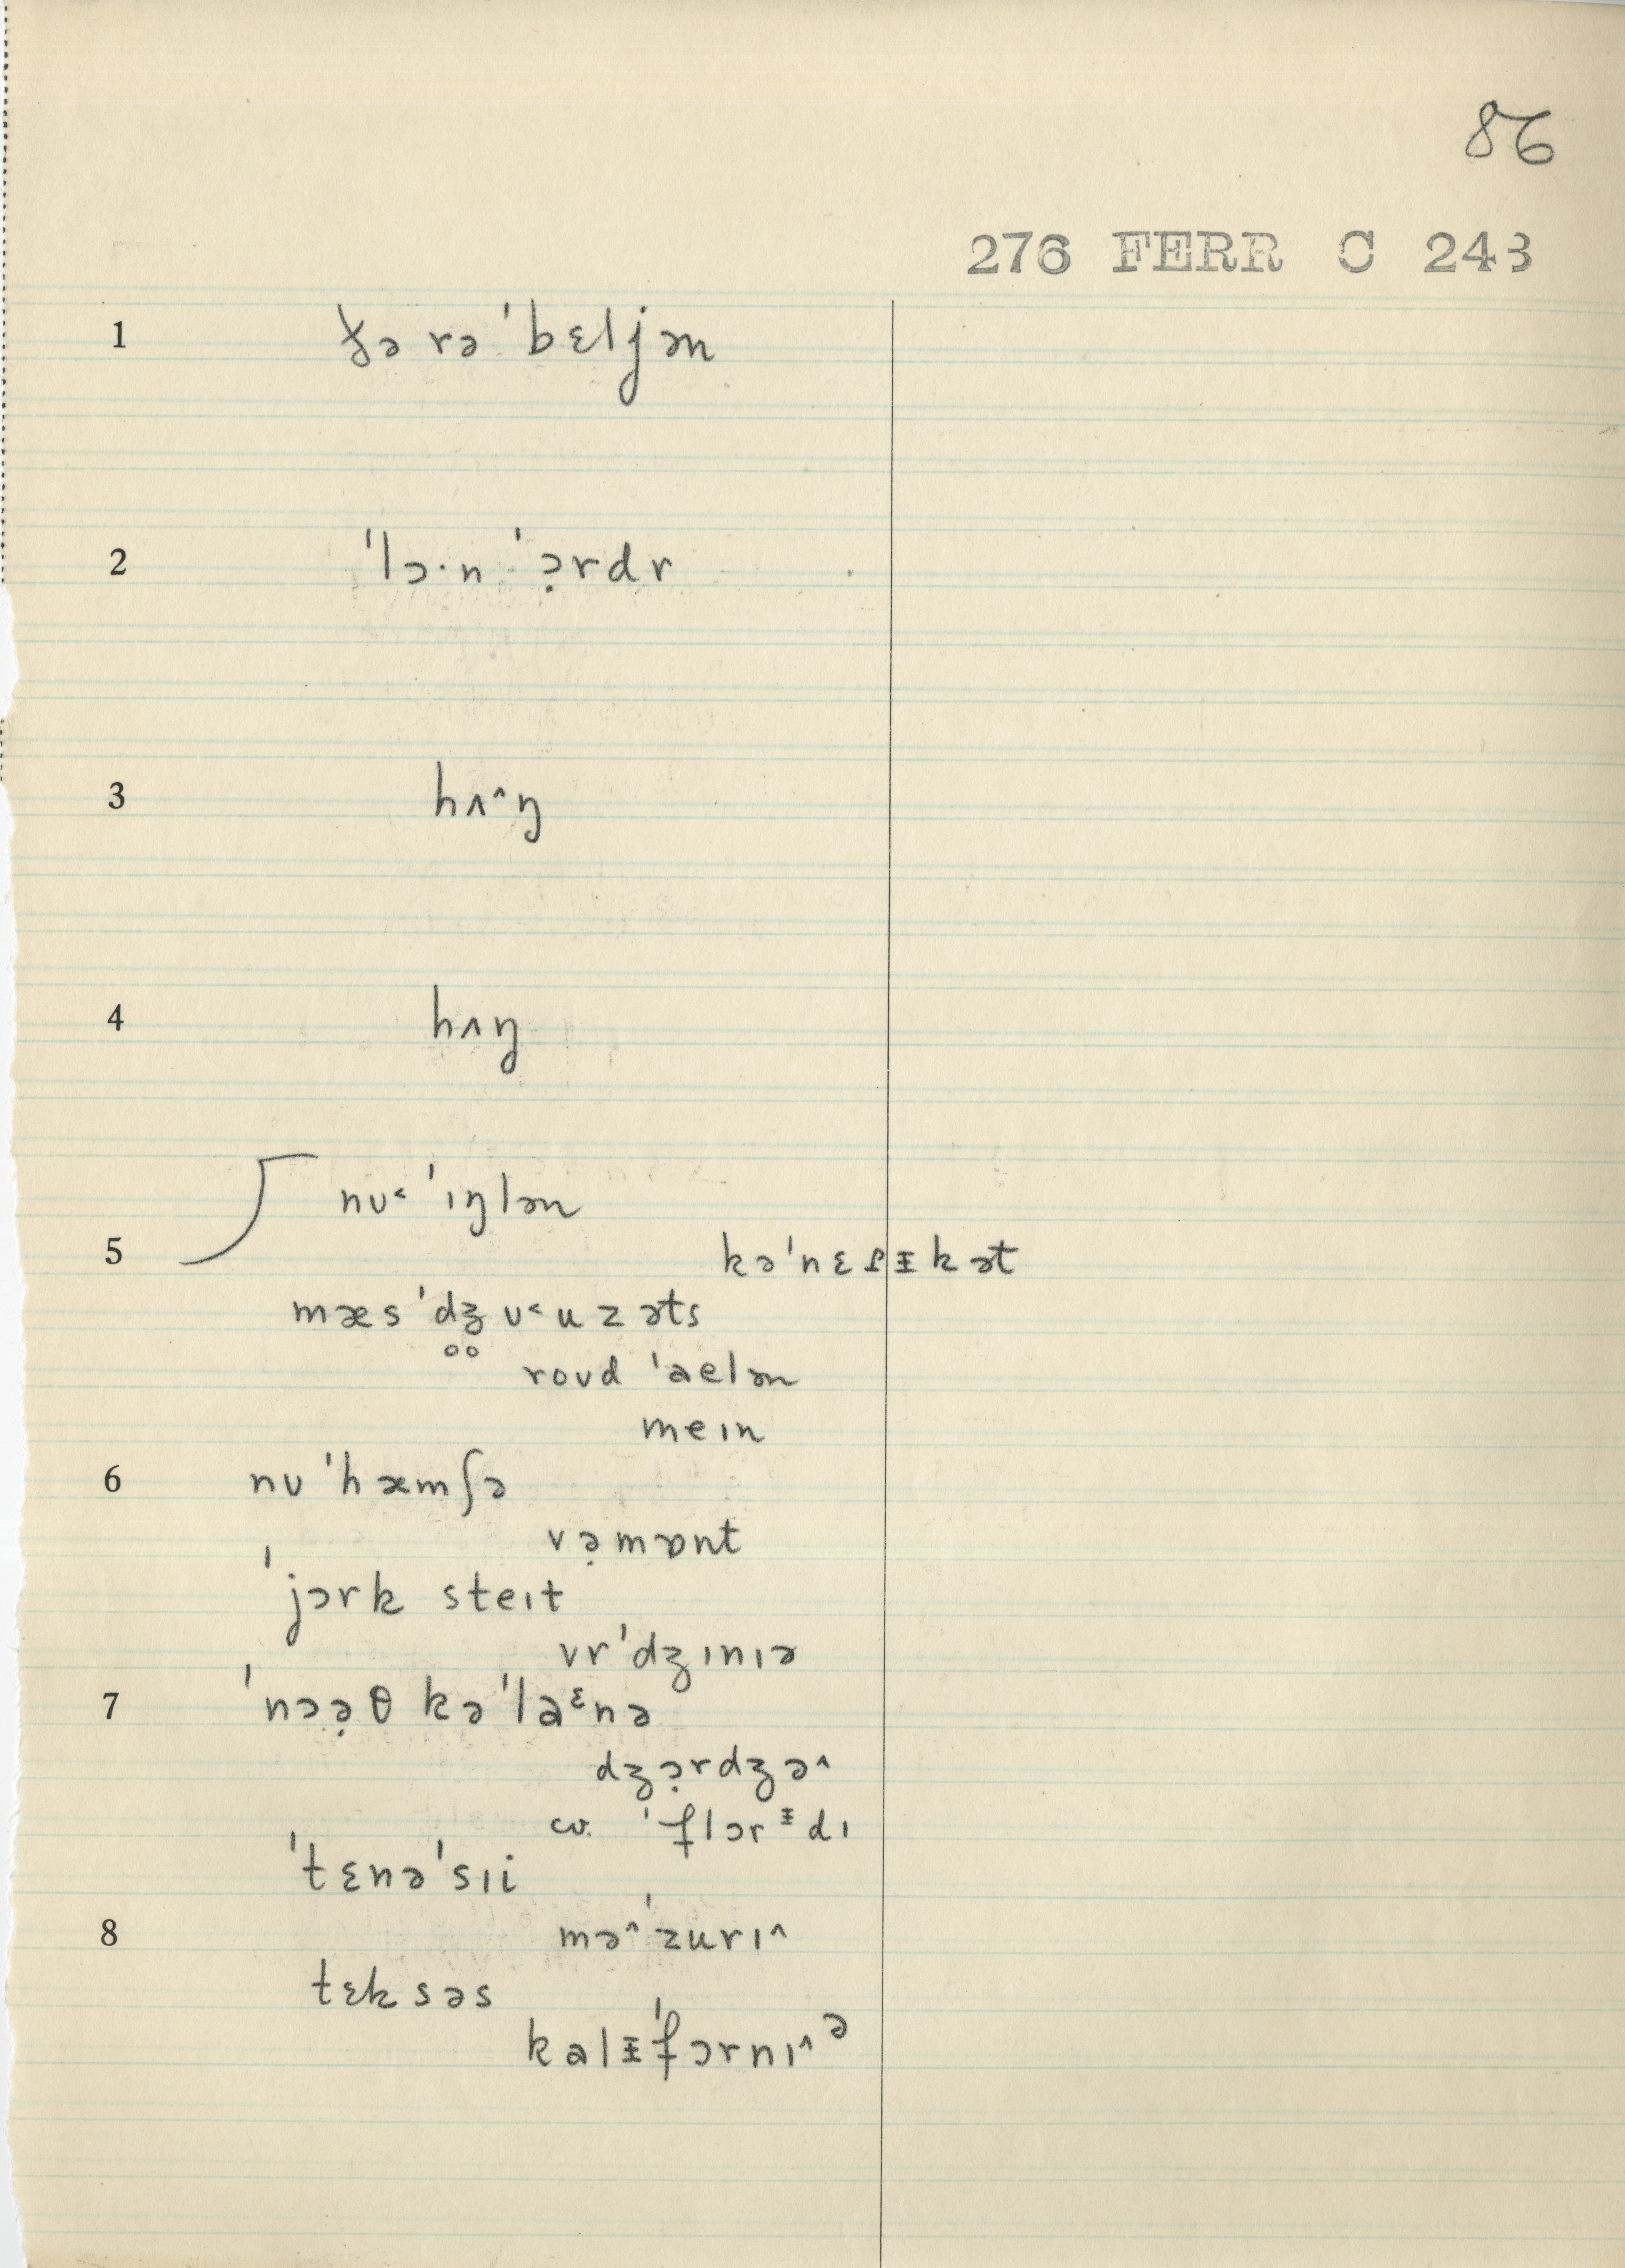 86
276 FERR C 243
1 ðə rəˈbɛljən
2 ˈlɔ·n ˈɔ̣rdr
3 hʌ^ŋ
4 hʌŋ
nʊ˂ ˈɪŋlən
5 kəˈnɛ ᵻkət
mæsˈdʒ̥̥ʊ˂uzəts
roʊd ˈaelən
meɪn
6 nʊ ˈhæmʃə
və̣mɒnt
ˈjɔrk steɪt
vrˈdʒɪnɪə
7 ˈnɔə̣θ kəˈlaᵋnə
dʒɔ̣rdʒə^
cv. ˈflɔrᵻdɪ
ˈtɛnəˈsɪi
8 mə^ˈzurɪ^
tɛksəs
kalᵻˈfɔrnɪ^ᵊ